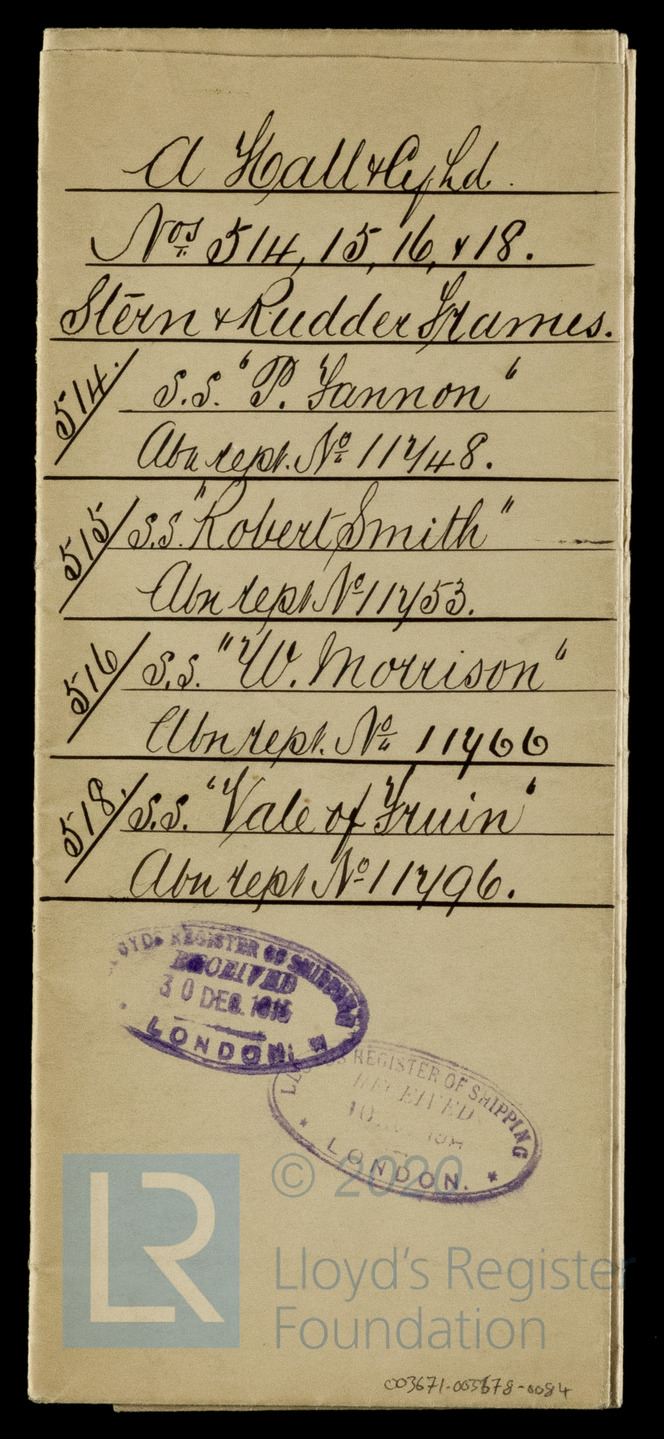 A Hall & Cy Ld.
Nos. 514, 15, 16, & 18.
Stern & Rudder Frames.
514. S.S. "P. Fannon"
Abn rept. No 11748.
515 S.S. "Robert Smith"
Abn rept No 11753.
516 S.S. "W. Morrison"
Abn rept. No 11766
518. S.S. "Vale of Fruin"
Abn rept No 11796.
LOYDS REGISTER OF SHIPPING
RECEIVED
30 DEC. 1915
LONDON
REGISTER OF SHIPPING
RECEIVED
LONDON.
LR
© 2020
Lloyd's Register
Foundation
003671-003678-0084